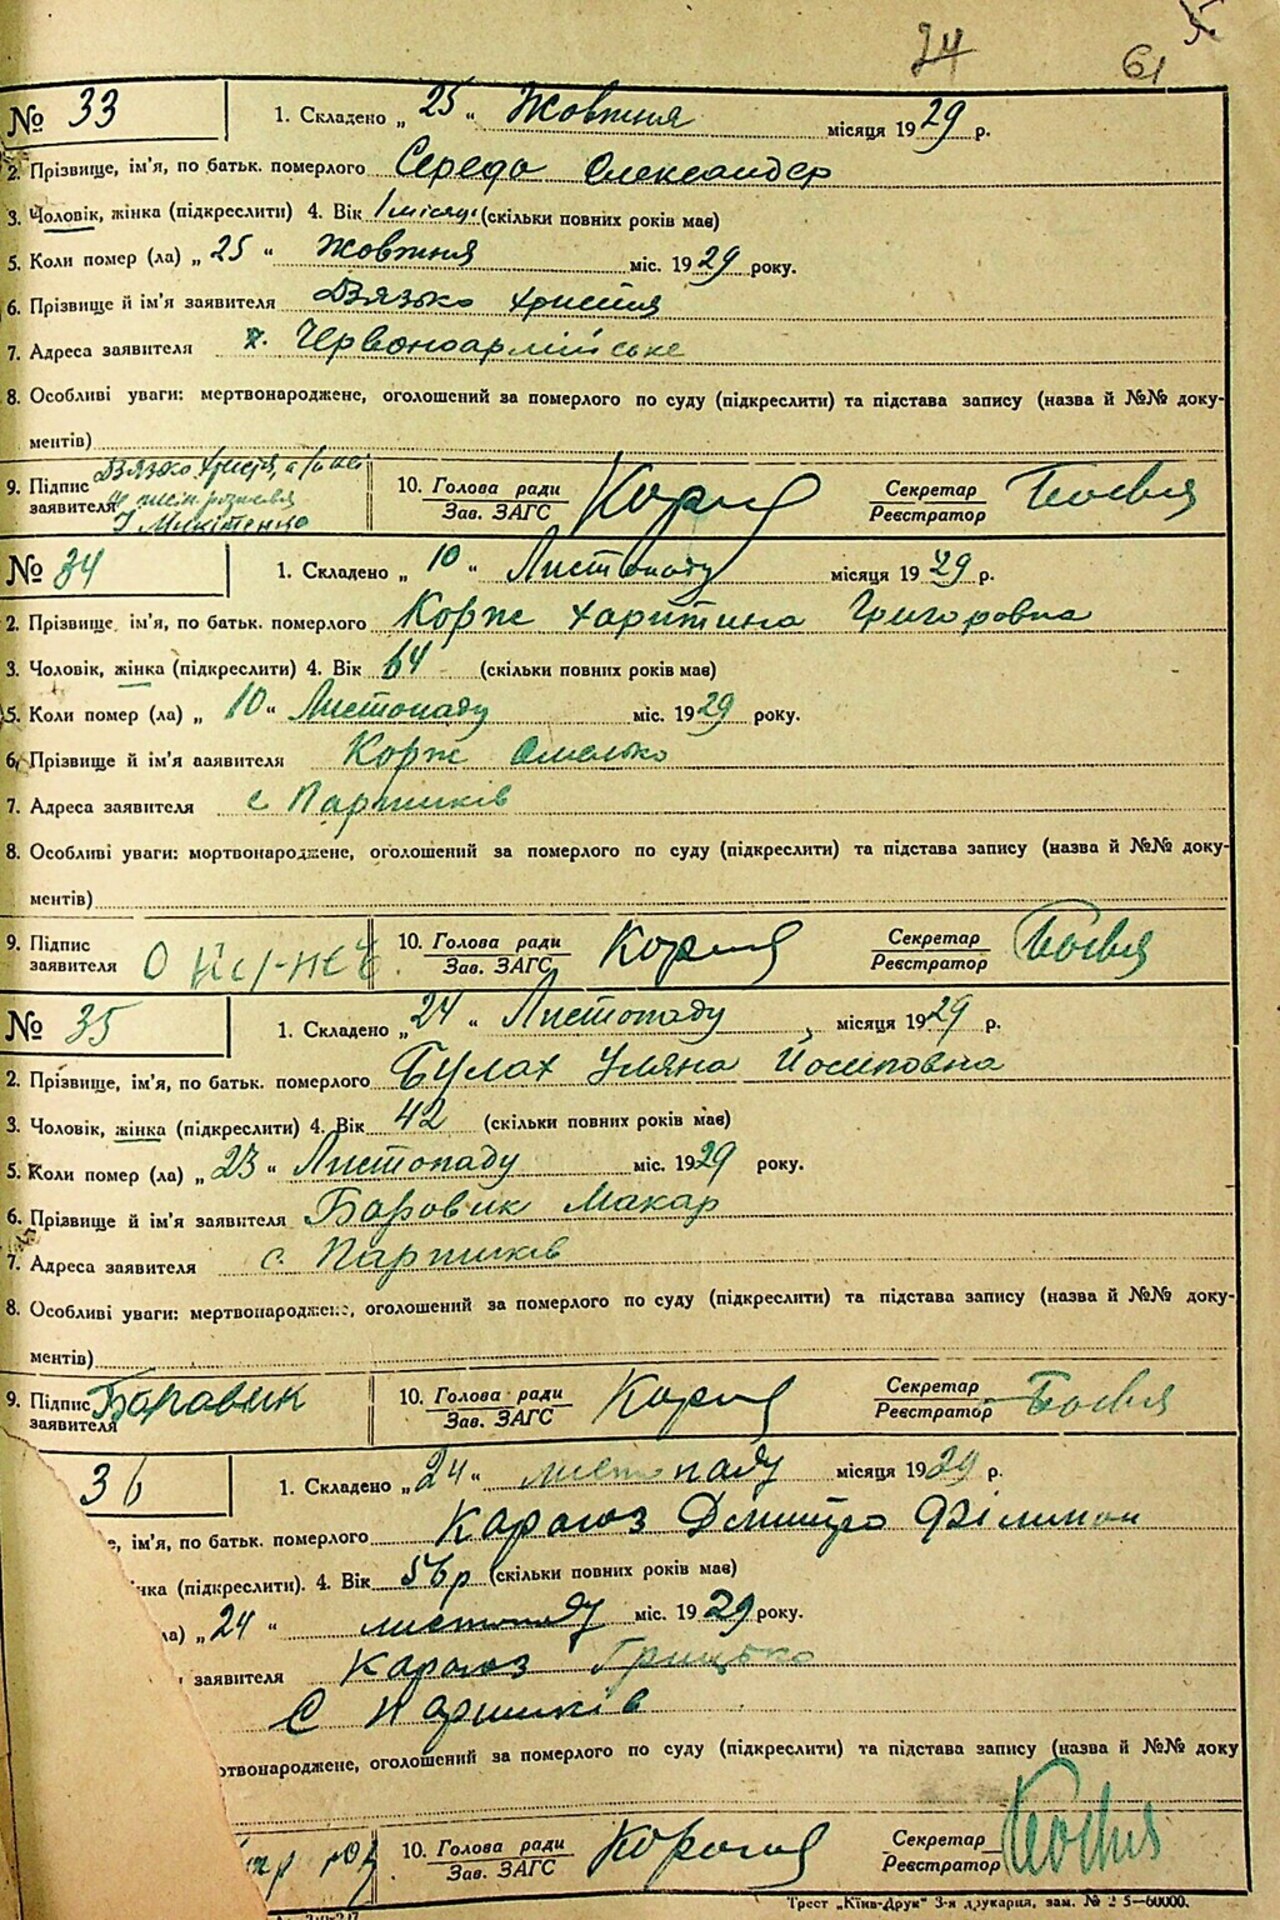 24 61
№ 33 1. Складено „ 25 “ Жовтня місяця 1929 р.
2. Прізвище, ім'я, по батьк. померлого Середа Олександер
3. Чоловік, жінка (підкреслити) 4. Вік 1 місяць (скільки повних років має)
5. Коли помер (ла) „ 25 “ Жовтня міс. 1929 року.
6. Прізвище й ім'я заявителя Вязько Христя
7. Адреса заявителя х. Червоноармійське
8. Особливі уваги: мертвонароджене, оголошений за померлого по суду (підкреслити) та підстава запису (назва й №№ доку-
ментів)
9. Підпис заявителя Вязко Христя, а 10. Голова ради Зав. ЗАГС Секретар Реєстратор
І Микітенко
№ 34 1. Складено „ 10 “ Листопаду місяця 1929 р.
2. Прізвище, ім'я, по батьк. померлого Корж Харитина Григоровна
3. Чоловік, жінка (підкреслити) 4. Вік 64 (скільки повних років має)
5. Коли помер (ла) „ 10 “ Листопаду міс. 1929 року.
6. Прізвище й ім'я ааявителя Корж Омелько
7. Адреса заявителя с Паришків
8. Особливі уваги: мортвонароджене, оголошений за померлого по суду (підкреслити) та підстава запису (назва й №№ доку-
ментів)
9. Підпис заявителя 10. Голова ради Зав. ЗАГС Секретар Реєстратор
№ 35 1. Складено „ 24 “ Листопаду місяця 1929 р.
2. Прізвище, ім'я, по батьк. померлого Булах Уляна Йосиповна
3. Чоловік, жінка (підкреслити) 4. Вік 42 (скільки повних років має)
5. Коли помер (ла) „ 23 “ Листопаду міс. 1929 року.
6. Прізвище й ім'я заявителя Боровик Макар
7. Адреса заявителя с. Паришків
8. Особливі уваги: мертвонароджене, оголошений за померлого по суду (підкреслити) та підстава запису (назва й №№ доку-
ментів)
9. Підпис заявителя Боровик 10. Голова ради Зав. ЗАГС Секретар Реєстратор
36 1. Складено „ 24 “ листопаду місяця 1929 р.
е, ім'я, по батьк. померлого Карагоз Дмитро Філимон
інка (підкреслити). 4. Вік 56 р (скільки повних років має)
ла) „ 24 “ листопаду міс. 1929 року.
заявителя Карагоз Грицько
С Паришків
отвонароджене, оголошений за померлого по суду (підкреслити) та підстава запису (назва й №№ доку
10. Голова ради Зав. ЗАГС Секретар Реєстратор
Трест „Київ-Друк“ 3-я друкарня, зам. № 2 5—60000.